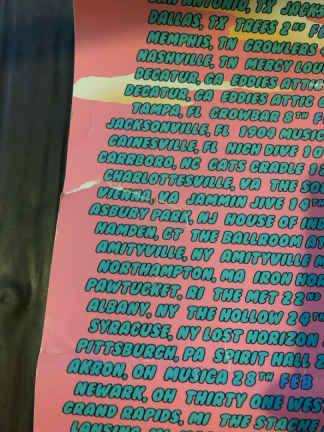 SAN ANTONIO, TX JACKS
DALLAS, TX TREES 2ND F
MEMPHIS, TN GROWLERS
NASHVILLE, TN MERCY LOU
DECATUR, GA EDDIES ATTIC
DECATUR, GA EDDIES ATTIC
TAMPA, FL CROWBAR 8TH F
JACKSONVILLE, FL 1904 MUSIC
GAINESVILLE, FL HIGH DIVE 10
CARRBORO, NC CATS CRADLE 12
CHARLOTTESVILLE, VA THE SO
VIENNA, VA JAMMIN JIVE 14TH
ASBURY PARK, NJ HOUSE OF IND
HAMDEN, CT THE BALLROOM AT
AMITYVILLE, NY AMITYVILLE M
NORTHAMPTON, MA IRON HOR
PAWTUCKET, RI THE MET 22ND
ALBANY, NY THE HOLLOW 24TH
SYRACUSE, NY LOST HORIZON
PITTSBURGH, PA SPIRIT HALL 2
AKRON, OH MUSICA 28TH FEB
NEWARK, OH THIRTY ONE WEST
GRAND RAPIDS, MI THE STACHE
LANSING, MI